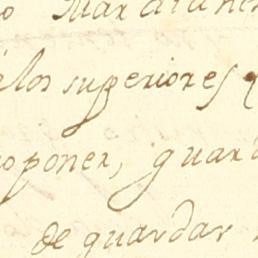 los superiores
oponer, guar
de guardar